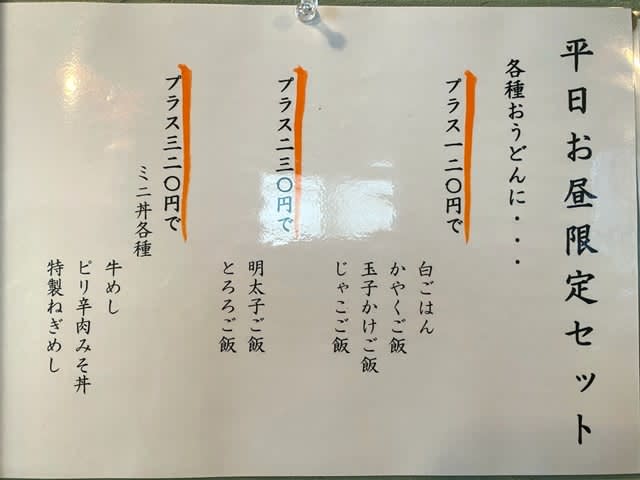 平日お昼限定セット
各種おうどんに・・・
プラス一二〇円で
白ごはん
かやくご飯
玉子かけご飯
じゃこご飯
プラス二三〇円で
明太子ご飯
とろろご飯
プラス三二〇円で
ミニ丼各種
牛めし
ピリ辛肉みそ丼
特製ねぎめし